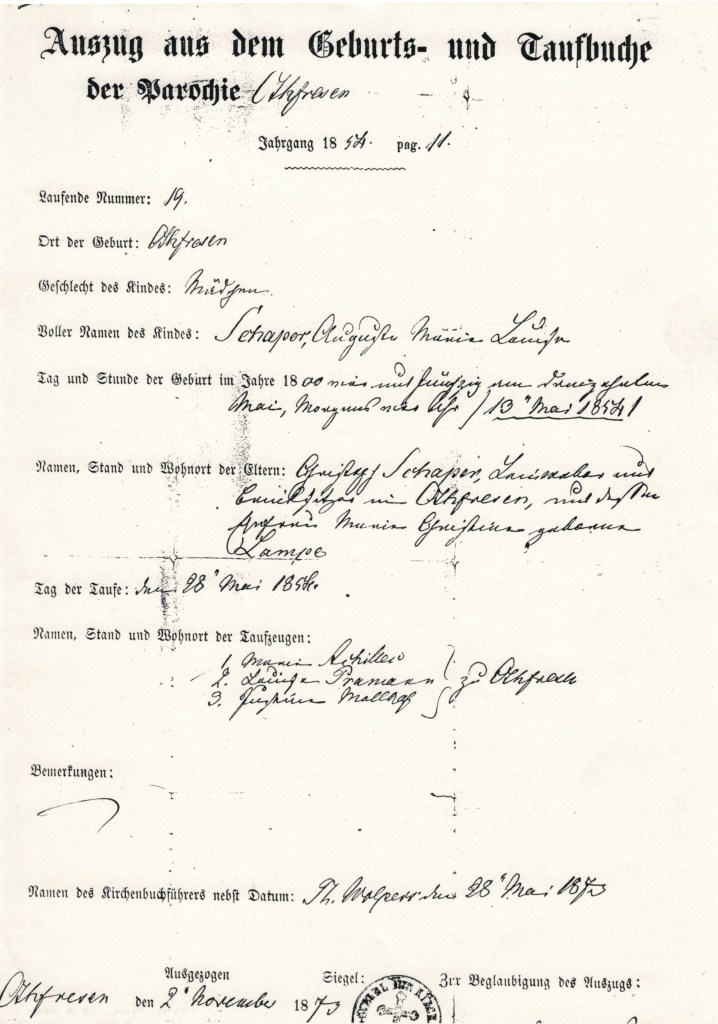 Auszug aus dem Geburts- und Taufbuche
der Parochie Othfresen
Jahrgang 1854. pag. 11.
Laufende Nummer: 19.
Ort der Geburt: Othfresen
Geschlecht des Kindes: Mädchen.
Voller Namen des Kindes: Schaper, Auguste Marie Louise
Tag und Stunde der Geburt im Jahre 1800 vier und fünfzig am dreizehnten
Mai, Morgens vier Uhr /13" Mai 1854/
Namen, Stand und Wohnort der Eltern: Christoph Schaper, Leinweber und
in Othfresen, und dessen
Ehefrau Marie Christine geborne
Lampe
Tag der Taufe: den 28" Mai 1854.
Namen, Stand und Wohnort der Taufzeugen:
1. Marie Achilles
2. Louise Pramann } zu Othfresen
3. Justine
Bemerkungen:
Namen des Kirchenbuchführers nebst Datum: Th. Wolpers den 28" Mai 1873
Ausgezogen Siegel: Zur Beglaubigung des Auszugs:
Othfresen den 2" November 1873